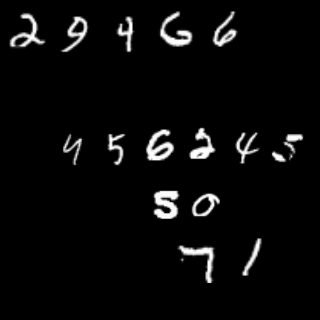 29466
456245
50
71